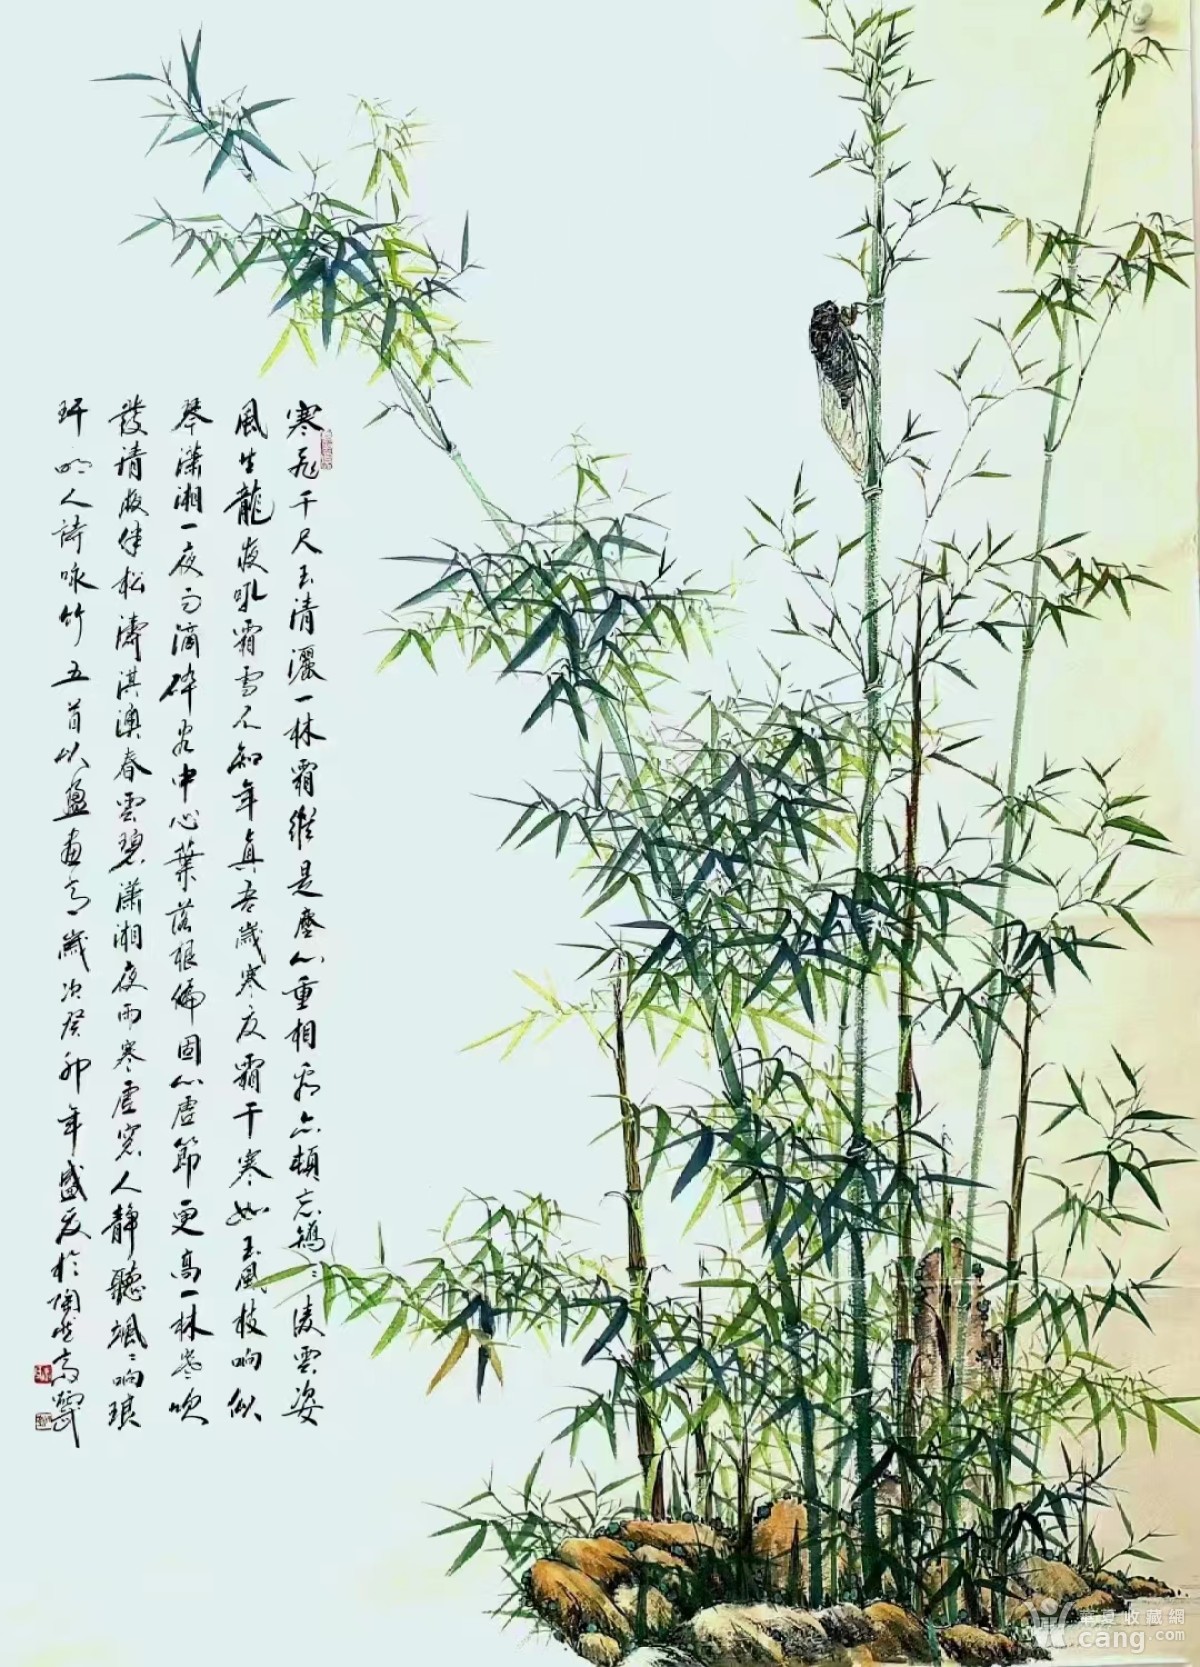 寒飛千尺玉清灑一林霜縱是塵心重相看亦頓忘鵷鵷淩雲姿
風生龍夜吼霜雪不知年真吾歲寒友霜干寒如玉風枝响似
琴瀟湘一夜雨滴碎客中心葉落根偏固心虛節更高一林寒吹
發清夜伴松濤淇澳春雲碧瀟湘夜雨寒虛窓人靜聽颯颯响琅
玕明人詩咏竹五首以盈畫高歲次癸卯年盛夏於
華夏收藏網
cang.com